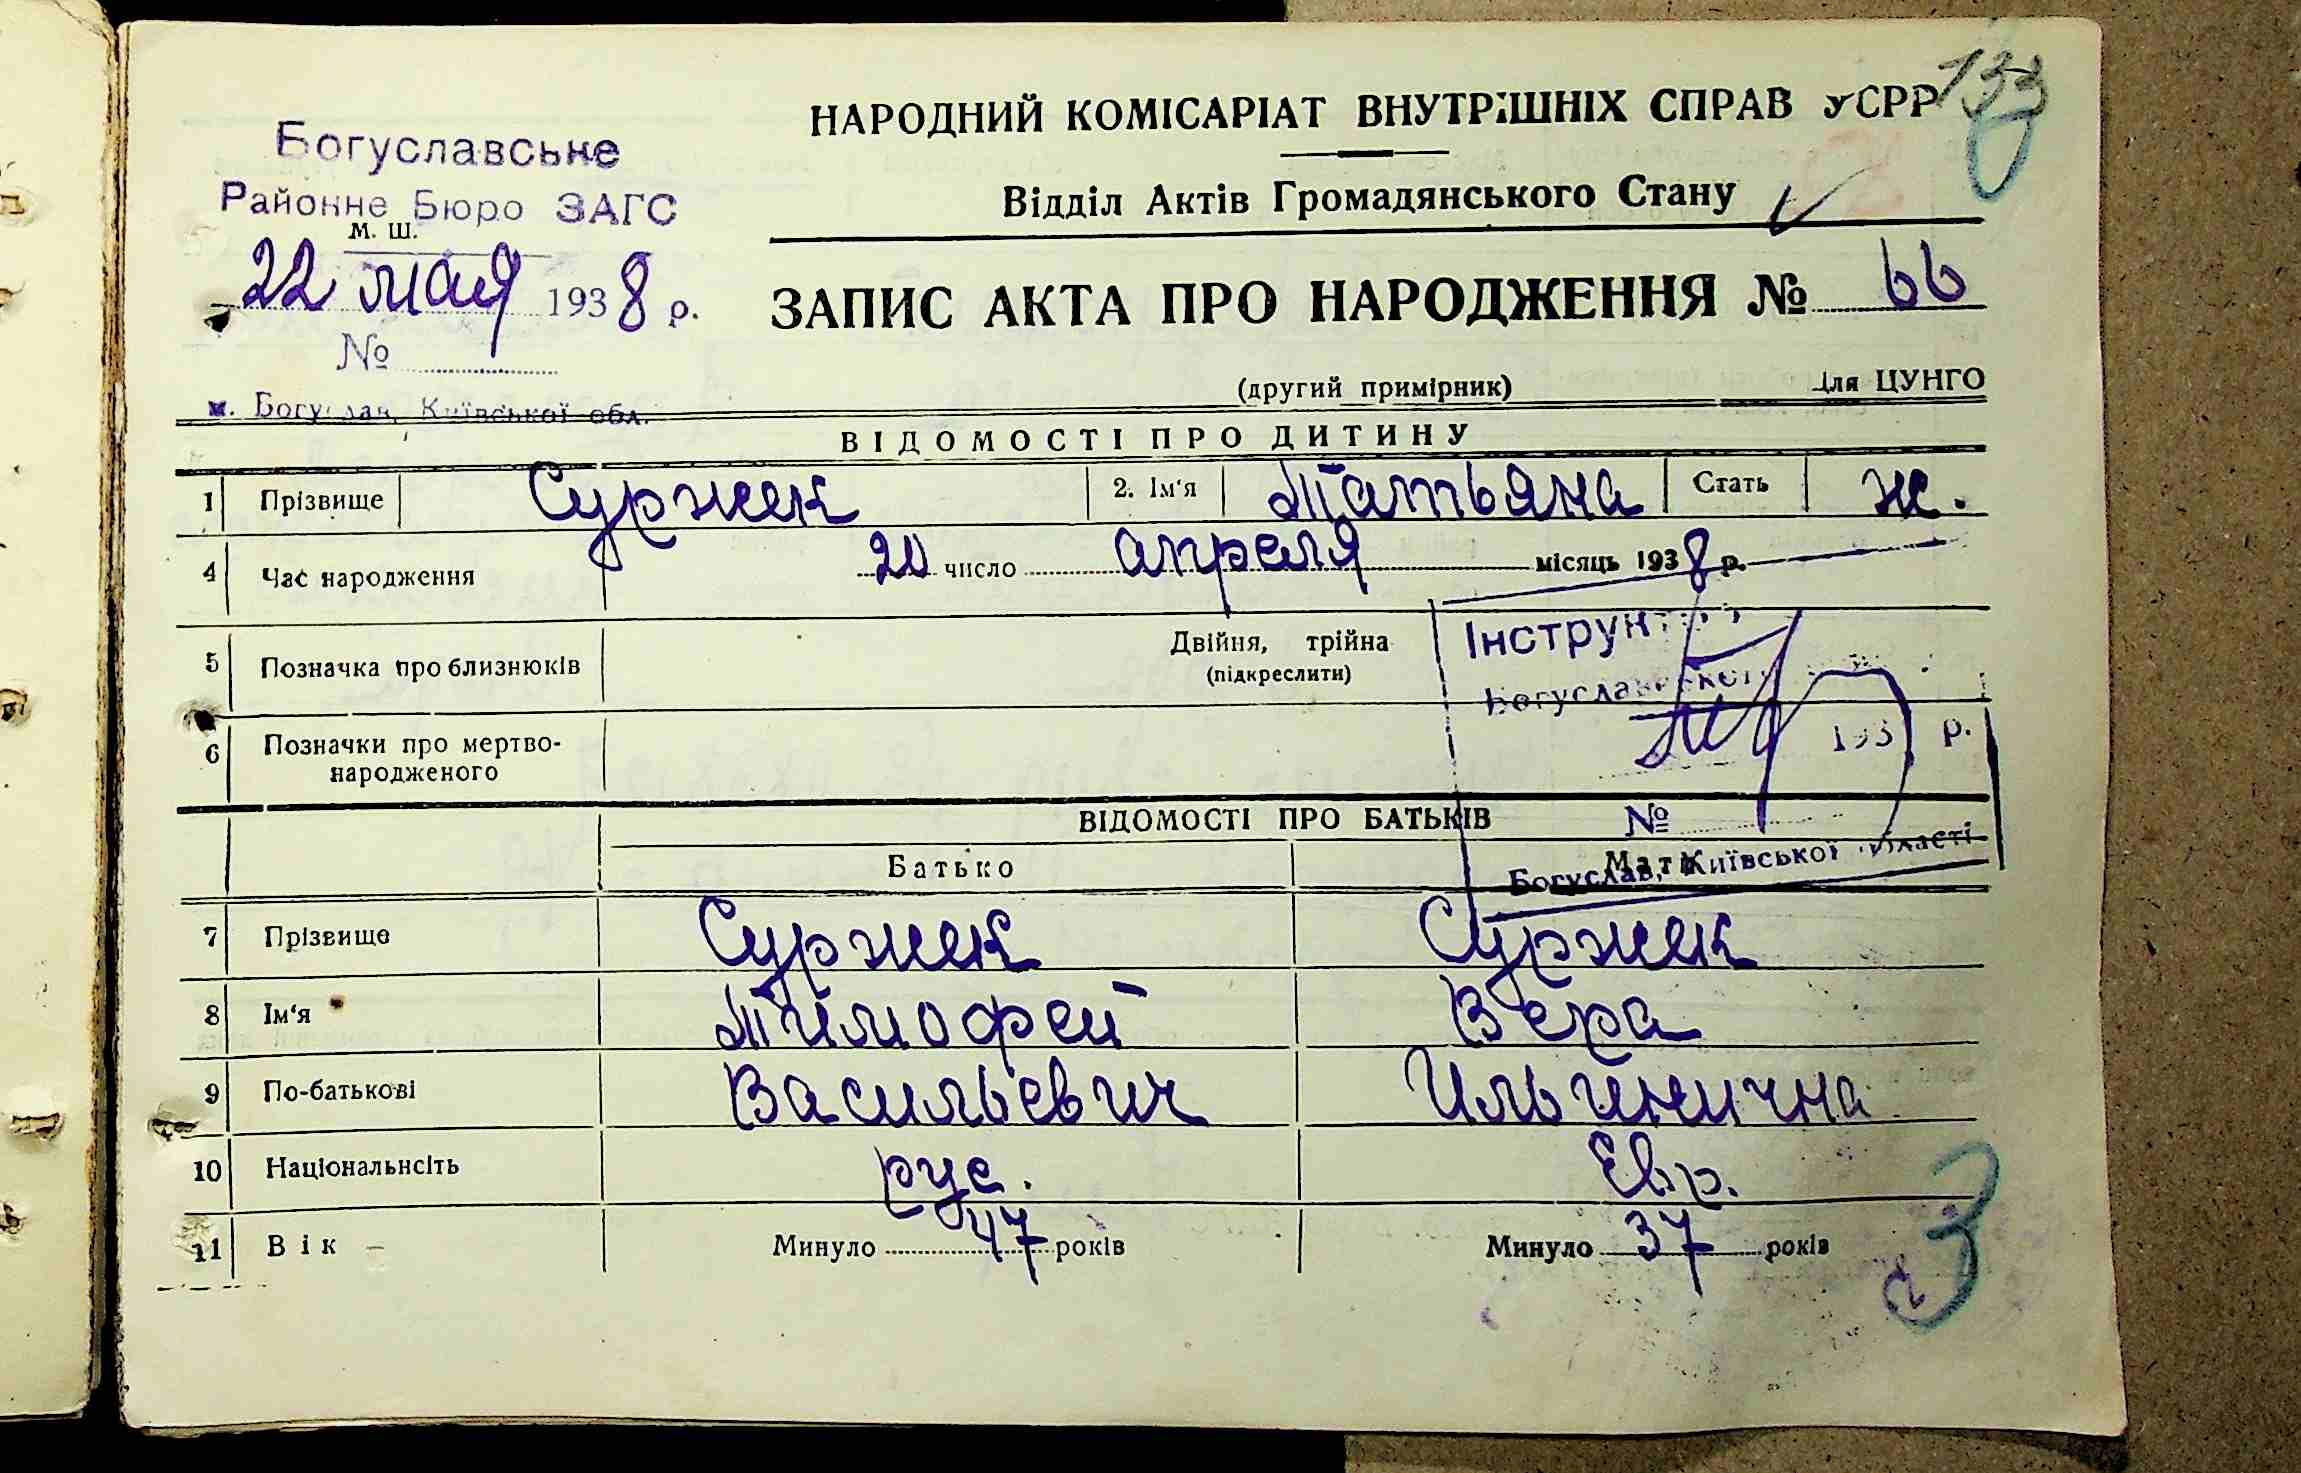 133
НАРОДНИЙ КОМІСАРІАТ ВНУТРІШНІХ СПРАВ УСРР
Відділ Актів Громадянського Стану
Богуславське
Районне Бюро ЗАГС
м. ш.
22 мая 1938 р.
№
м. Богуслав, Київської обл.
ЗАПИС АКТА ПРО НАРОДЖЕННЯ № 66
(другий примірник) Для ЦУНГО
ВІДОМОСТІ ПРО ДИТИНУ
1 Прізвище Суржек 2. Ім'я Татьяна Стать ж.
4 Час народження 20 число апреля місяць 1938 р.
5 Позначка про близнюків Двійня, трійна
(підкреслити)
Інструктор
Богуславського
6 Позначки про мертво-
народженого
193 р.
№
Богуслав, Київської області
ВІДОМОСТІ ПРО БАТЬКІВ
Батько Мати
7 Прізвище Суржек Суржек
8 Ім'я Тимофей Вера
9 По-батькові Васильевич Ильинична
10 Національнсіть рус. Евр.
11 Вік Минуло 47 років Минуло 37 років
3